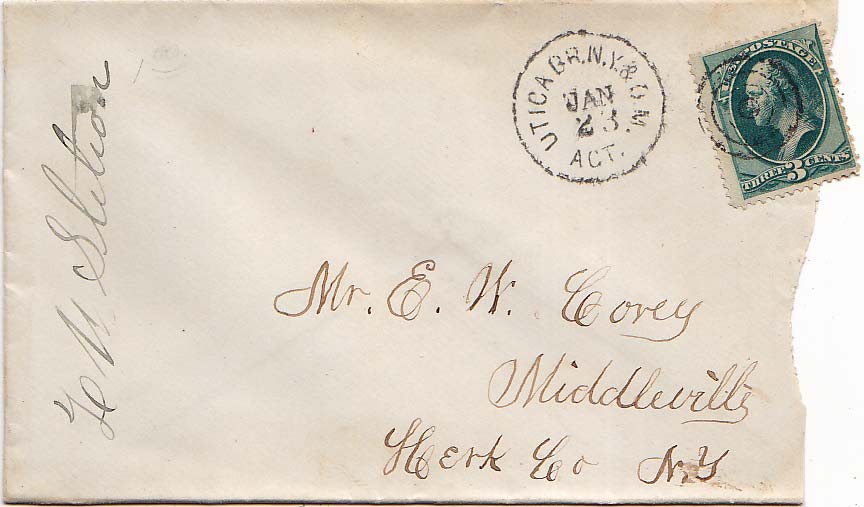 UTICA BR. N.Y. & O.M.
JAN
23
ACT.
U.S. POSTAGE
THREE 3 CENTS
Mr. E. W. Corey
Middleville
Herk Co N.Y